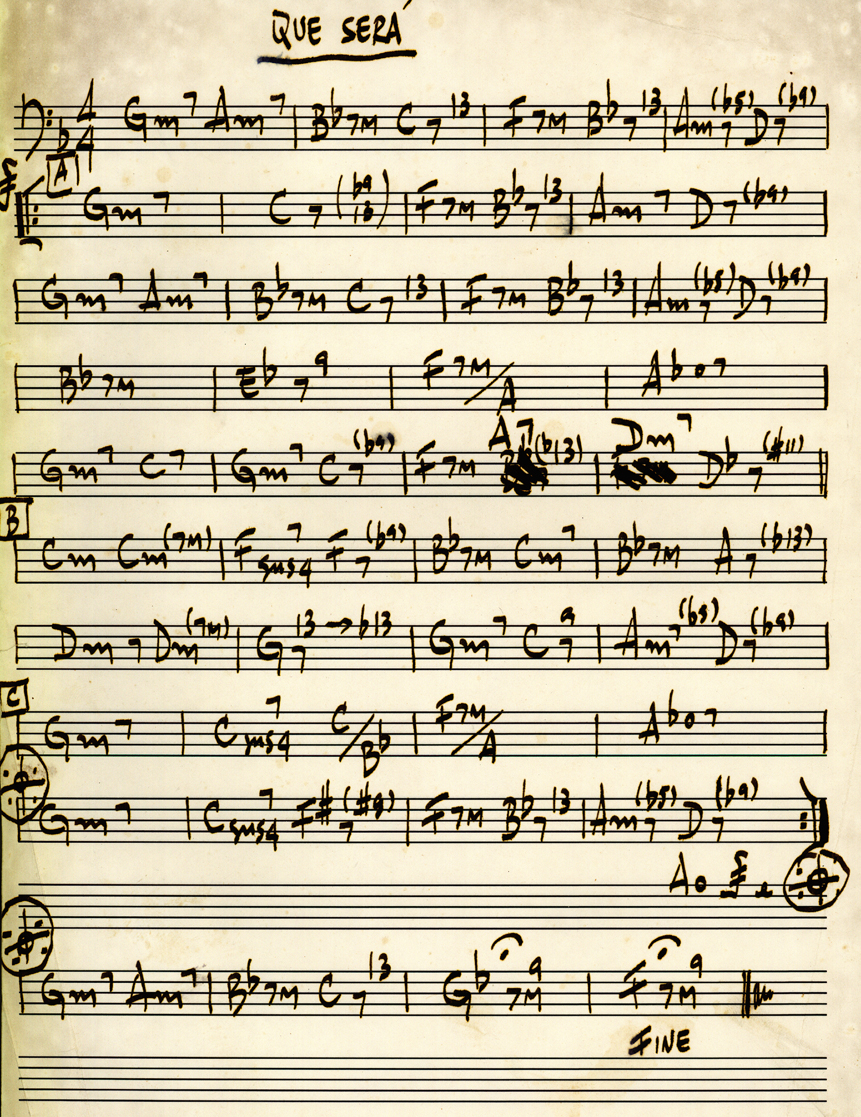 QUE SERÁ
4/4 Gm7 Am7 | B♭7M C7 13 | F7M B♭7 13 | Am7(♭5) D7(♭9)
A
Gm7 | C7(♭9 13) | F7M B♭7 13 | Am7 D7(♭9)
Gm7 Am7 | B♭7M C7 13 | F7M B♭7 13 | Am7(♭5) D7(♭9)
B♭7M | E♭7 9 | F7M/A | A♭o7
Gm7 C7 | Gm7 C7(♭9) | F7M A7(♭13) | Dm7 D♭7(#11)
B
Cm Cm(7M) | F7sus4 F7(♭9) | B♭7M Cm7 | B♭7M A7(♭13)
Dm7 Dm(7M) | G7 13→♭13 | Gm7 C7 9 | Am7(♭5) D7(♭9)
C
Gm7 | C7sus4 C/B♭ | F7M/A | A♭o7
Gm7 | C7sus4 F#7(#9) | F7M B♭7 13 | Am7(♭5) D7(♭9)
Ao
Gm7 Am7 | B♭7M C7 13 | G♭7M 9 | F7M 9
FINE